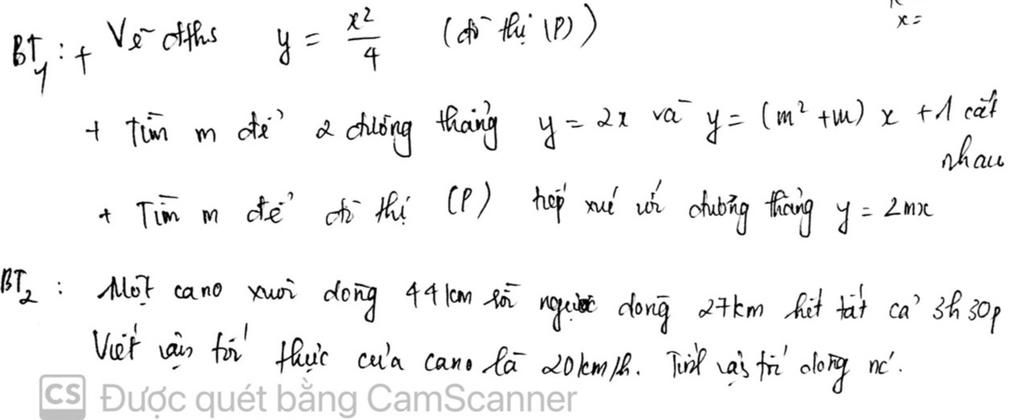 x =
BT1 : + Vẽ đths y = x²/4 (đồ thị (P))
+ Tìm m để 2 đường thẳng y = 2x và y = (m² + m) x + 1 cắt
nhau
+ Tìm m để đồ thị (P) tiếp xúc với đường thẳng y = 2mx
BT2 : Một cano xuôi dòng 44km rồi ngược dòng 27km hết tất cả 3h30p
Viết vận tốc thực của cano là 20km/h. Tính vận tốc dòng nc.
CS Được quét bằng CamScanner